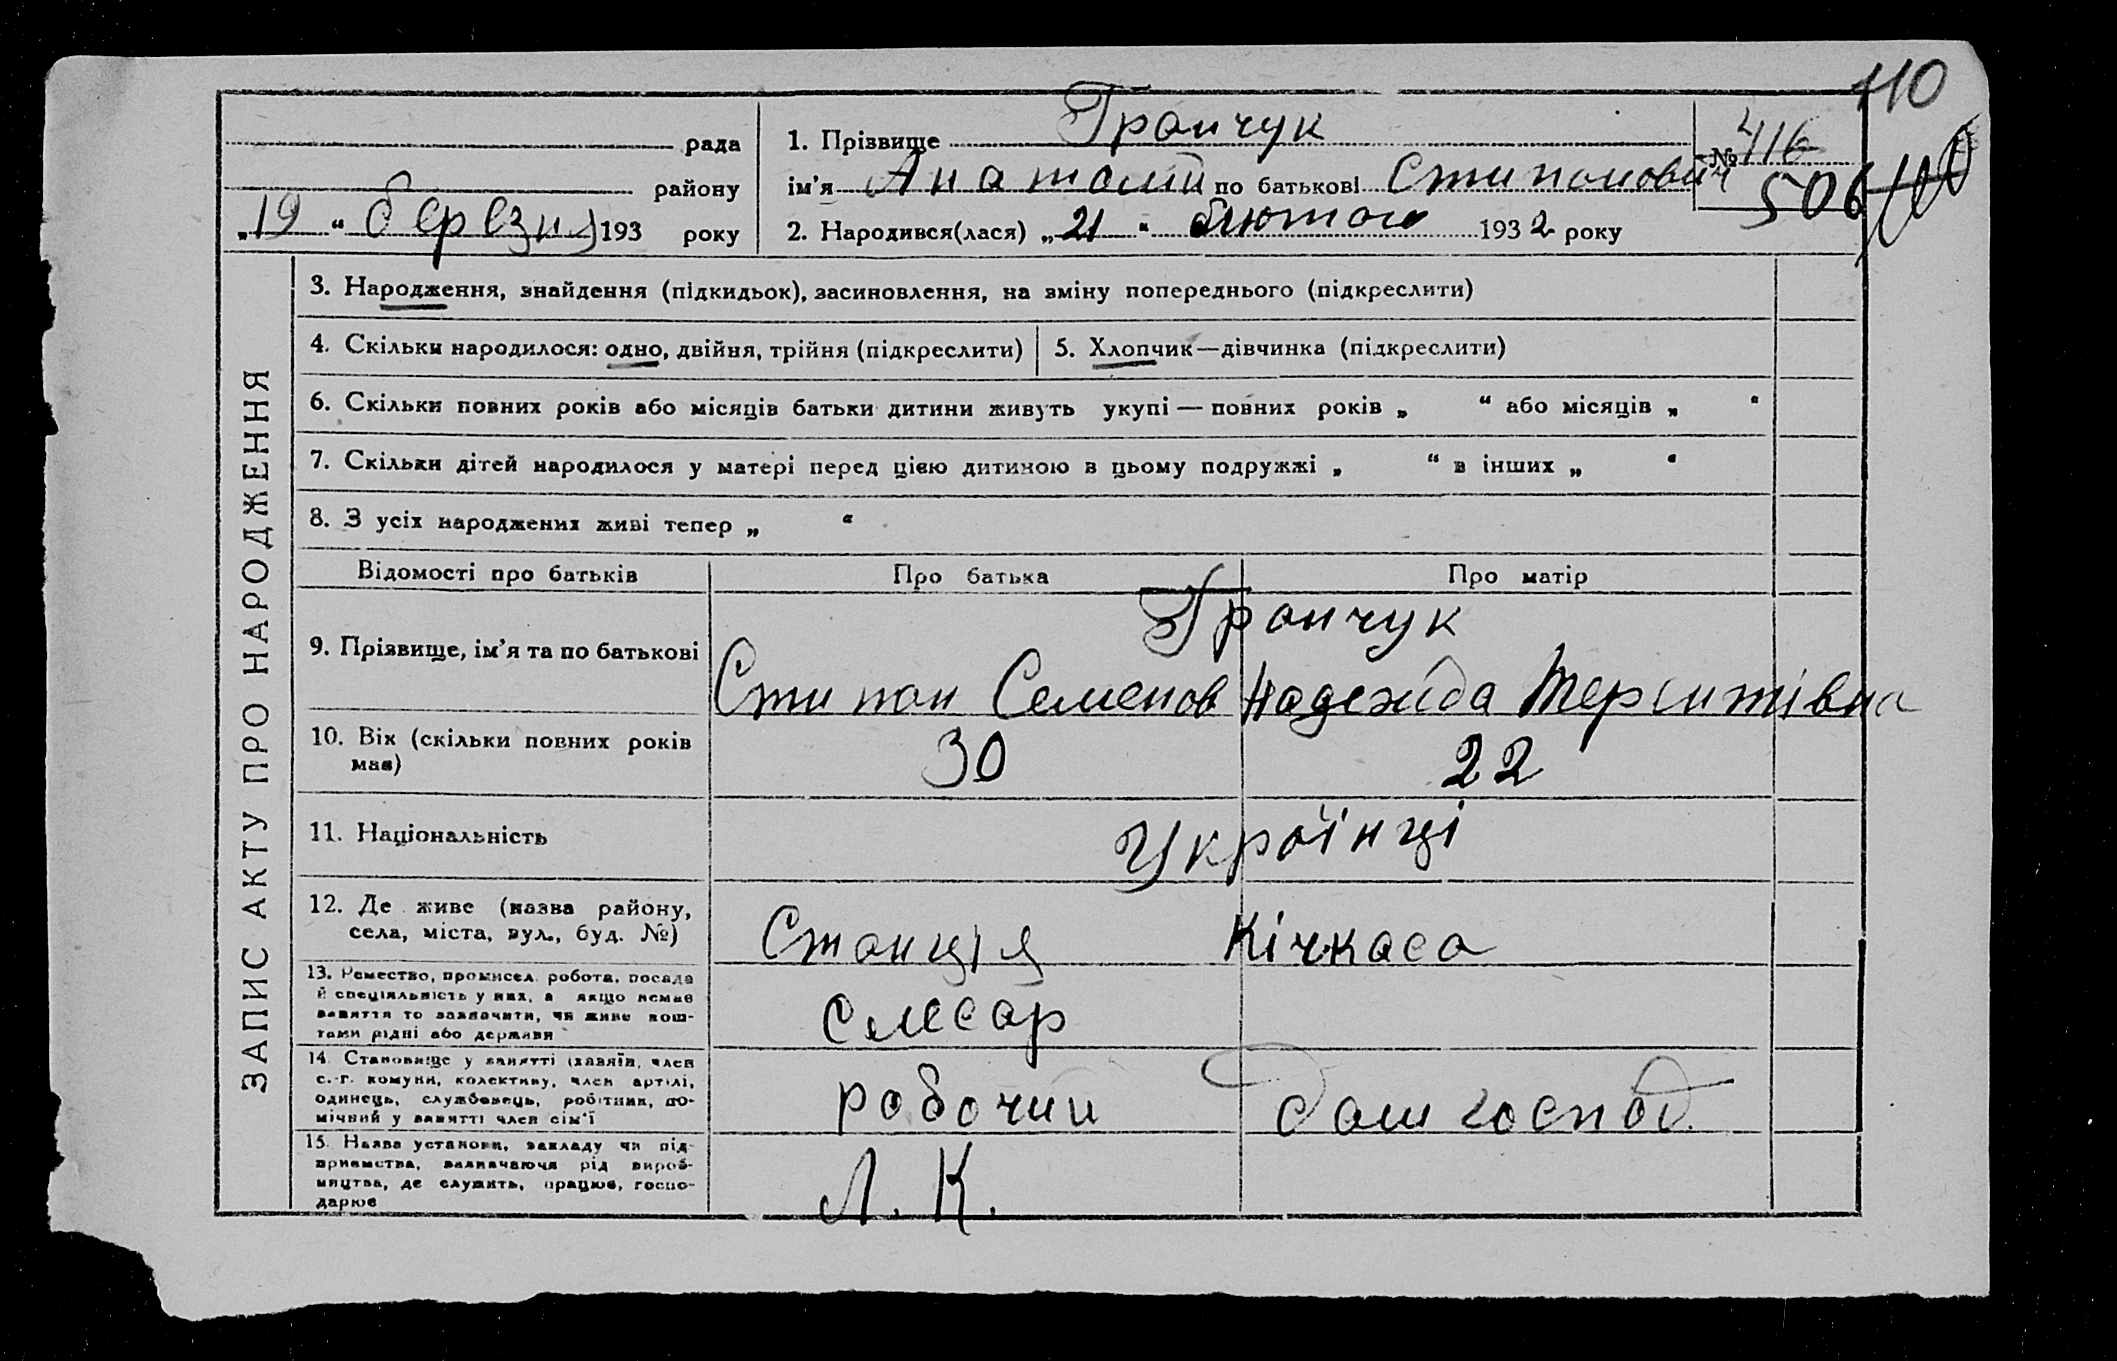 110
рада
району
„19“ березня 193 року
1. Прізвище Гранчук
ім'я Анатолій по батькові Стипанович
2. Народився(лася) „21“ лютого 1932 року
№ 416
506
ЗАПИС АКТУ ПРО НАРОДЖЕННЯ
3. Народження, знайдення (підкидьок), засиновлення, на зміну попереднього (підкреслити)
4. Скільки народилося: одно, двійня, трійня (підкреслити)
5. Хлопчик—дівчинка (підкреслити)
6. Скільки повних років або місяців батьки дитини живуть укупі — повних років „ “ або місяців „ “
7. Скільки дітей народилося у матері перед цією дитиною в цьому подружжі „ “ в інших „ “
8. З усіх народжених живі тепер „ “
Відомості про батьків
Про батька
Про матір
9. Прізвище, ім'я та по батькові
Гранчук
Стипан Семенов Надежда Терситівна
10. Вік (скільки повних років
має)
30
22
11. Національність
Українці
12. Де живе (назва району,
села, міста, вул., буд. №)
Станція Кічкаса
13. Ремество, промисел, робота, посада
й спеціяльність у них, а якщо немає
заняття то зазначити, чи живе кош-
тами рідні або держави
слесар
14. Становище у занятті (хазяїн, член
с.-г. комуни, колективу, член артілі,
одинець, службовець, робітник, по-
мічний у занятті член сім'ї
робочий
дом господ.
15. Назва установи, закладу чи під-
приємства, зазначаючи рід вироб-
ництва, де служить, працює, госпо-
дарює
Л. К.